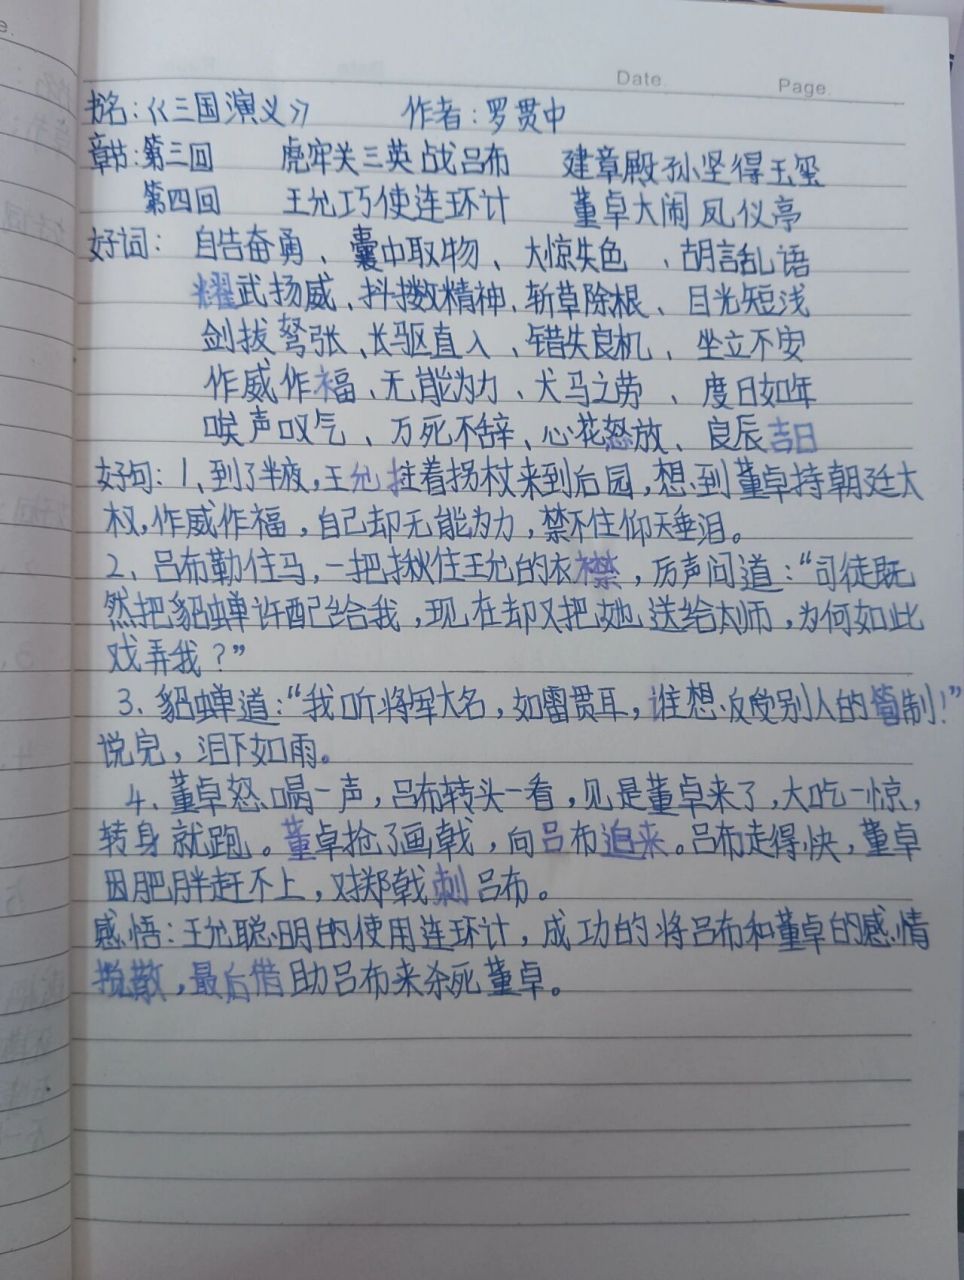 Date. Page.
书名：《三国演义》 作者：罗贯中
章节：第三回 虎牢关三英战吕布 建章殿孙坚得玉玺
第四回 王允巧使连环计 董卓大闹凤仪亭
好词： 自告奋勇、囊中取物、大惊失色、胡言乱语
耀武扬威、抖擞精神、斩草除根、目光短浅
剑拔弩张、长驱直入、错失良机、坐立不安
作威作福、无能为力、犬马之劳、度日如年
唉声叹气、万死不辞、心花怒放、良辰吉日
好句：1、到了半夜，王允拄着拐杖来到后园，想到董卓持朝廷大
权，作威作福，自己却无能为力，禁不住仰天垂泪。
2、吕布勒住马，一把揪住王允的衣襟，厉声问道：“司徒既
然把貂蝉许配给我，现在却又把她送给太师，为何如此
戏弄我？”
3、貂蝉道：“我听将军大名，如雷贯耳，谁想反受别人的管制！”
说完，泪下如雨。
4、董卓怒喝一声，吕布转头一看，见是董卓来了，大吃一惊，
转身就跑。董卓抢了画戟，向吕布追来。吕布走得快，董卓
因肥胖赶不上，才掷戟刺吕布。
感悟：王允聪明的使用连环计，成功的将吕布和董卓的感情
搅散，最后借助吕布来杀死董卓。